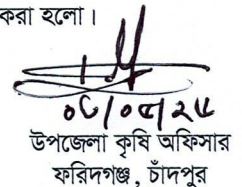 করা হলো।
০৮/০৫/২৪
উপজেলা কৃষি অফিসার
ফরিদগঞ্জ, চাঁদপুর